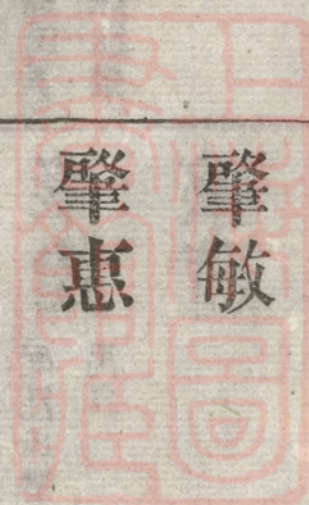 肇敏
肇惠